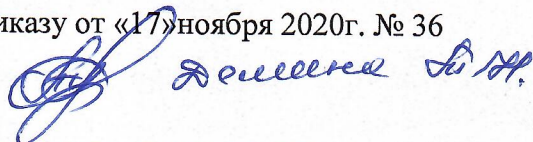 иказу от «17»ноября 2020г. № 36
Демина